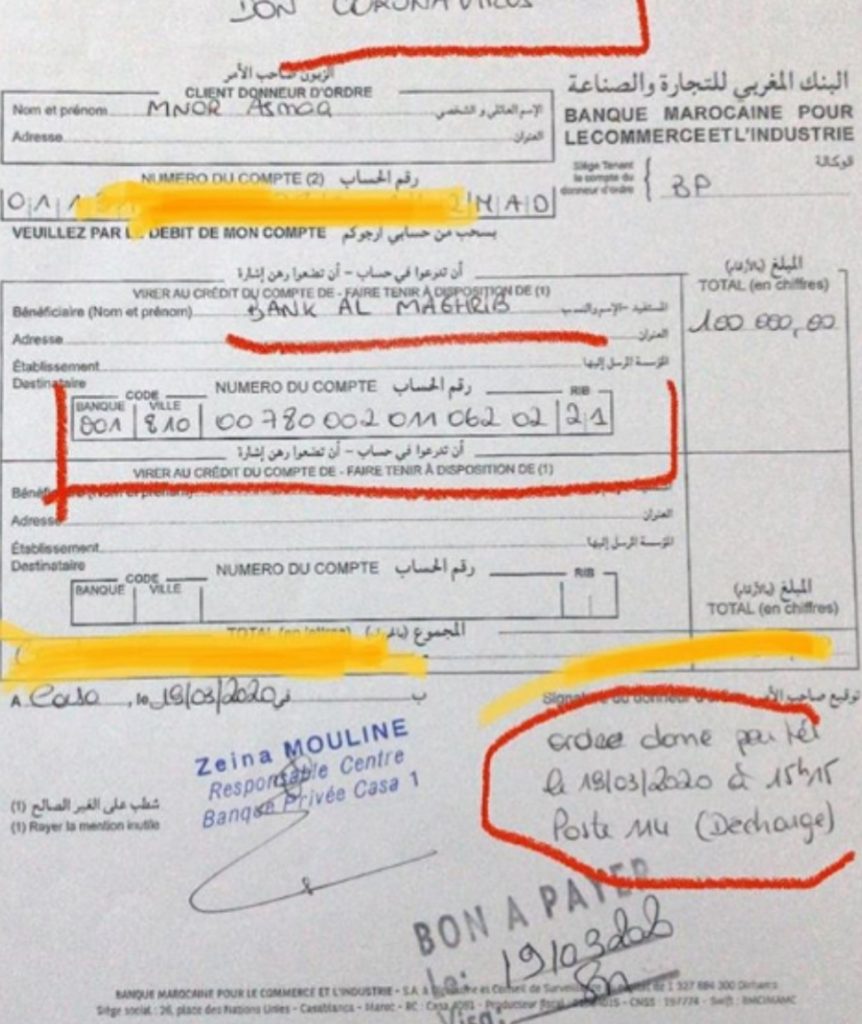 DON CORONA VIRUS
الزبون صاحب الأمر
CLIENT DONNEUR D'ORDRE
البنك المغربي للتجارة والصناعة
BANQUE MAROCAINE POUR
LE COMMERCE ET L'INDUSTRIE
Nom et prénom MNOR Asmaa الإسم العائلي و الشخصي
Adresse العنوان
Siège Tenant
le compte du
donneur d'ordre
BP
الوكالة
NUMERO DU COMPTE (2) رقم الحساب
0 1 1
2 M A D
VEUILLEZ PAR LE DEBIT DE MON COMPTE بسحب من حسابي أرجوكم
أن تدرعوا في حساب - أن تضعوا رهن إشارة
VIRER AU CRÉDIT DU COMPTE DE - FAIRE TENIR À DISPOSITION DE (1)
المبلغ (بالأرقام)
TOTAL (en chiffres)
Bénéficiaire (Nom et prénom) BANK AL MAGHRIB
100 000,00
Adresse العنوان
Établissement المؤسسة المرسل إليها
Destinataire
CODE
NUMERO DU COMPTE رقم الحساب
RIB
BANQUE VILLE
001 810 00 780 002 011 062 02 21
أن تدرعوا في حساب - أن تضعوا رهن إشارة
VIRER AU CRÉDIT DU COMPTE DE - FAIRE TENIR À DISPOSITION DE (1)
Bénéficiaire (Nom et prénom)
Adresse العنوان
Établissement المؤسسة المرسل إليها
Destinataire
CODE
NUMERO DU COMPTE رقم الحساب
RIB
BANQUE VILLE
المبلغ (بالأرقام)
TOTAL (en chiffres)
TOTAL (en lettres) المجموع
A Casa, le 19/03/2020 في ب
Signature du donneur d'ordre توقيع صاحب الأمر
ordre donné par tél
le 19/03/2020 à 15h15
Poste 114 (Decharge)
Zeina MOULINE
Responsable Centre
Banque Privée Casa 1
(1) شطب على الغير الصالح
(1) Rayer la mention inutile
BON A PAYER
Le: 19/03/2020
Visa:
BANQUE MAROCAINE POUR LE COMMERCE ET L'INDUSTRIE - S.A. à Directoire et Conseil de Surveillance 1 327 884 300 Dirhams
Siège social : 26, place des Nations Unies - Casablanca - Maroc - RC : Casa 4091 - CNSS : 197774 - Swift : BMCIMAMC